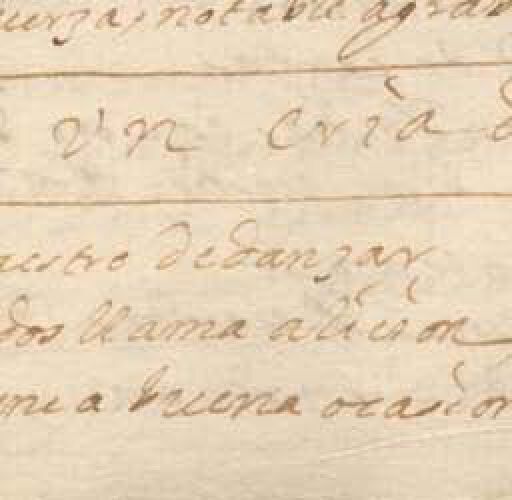 uerza, notable agra
vn cria d
aestro dedanzar
dos llama alicion
me a buena ocasion